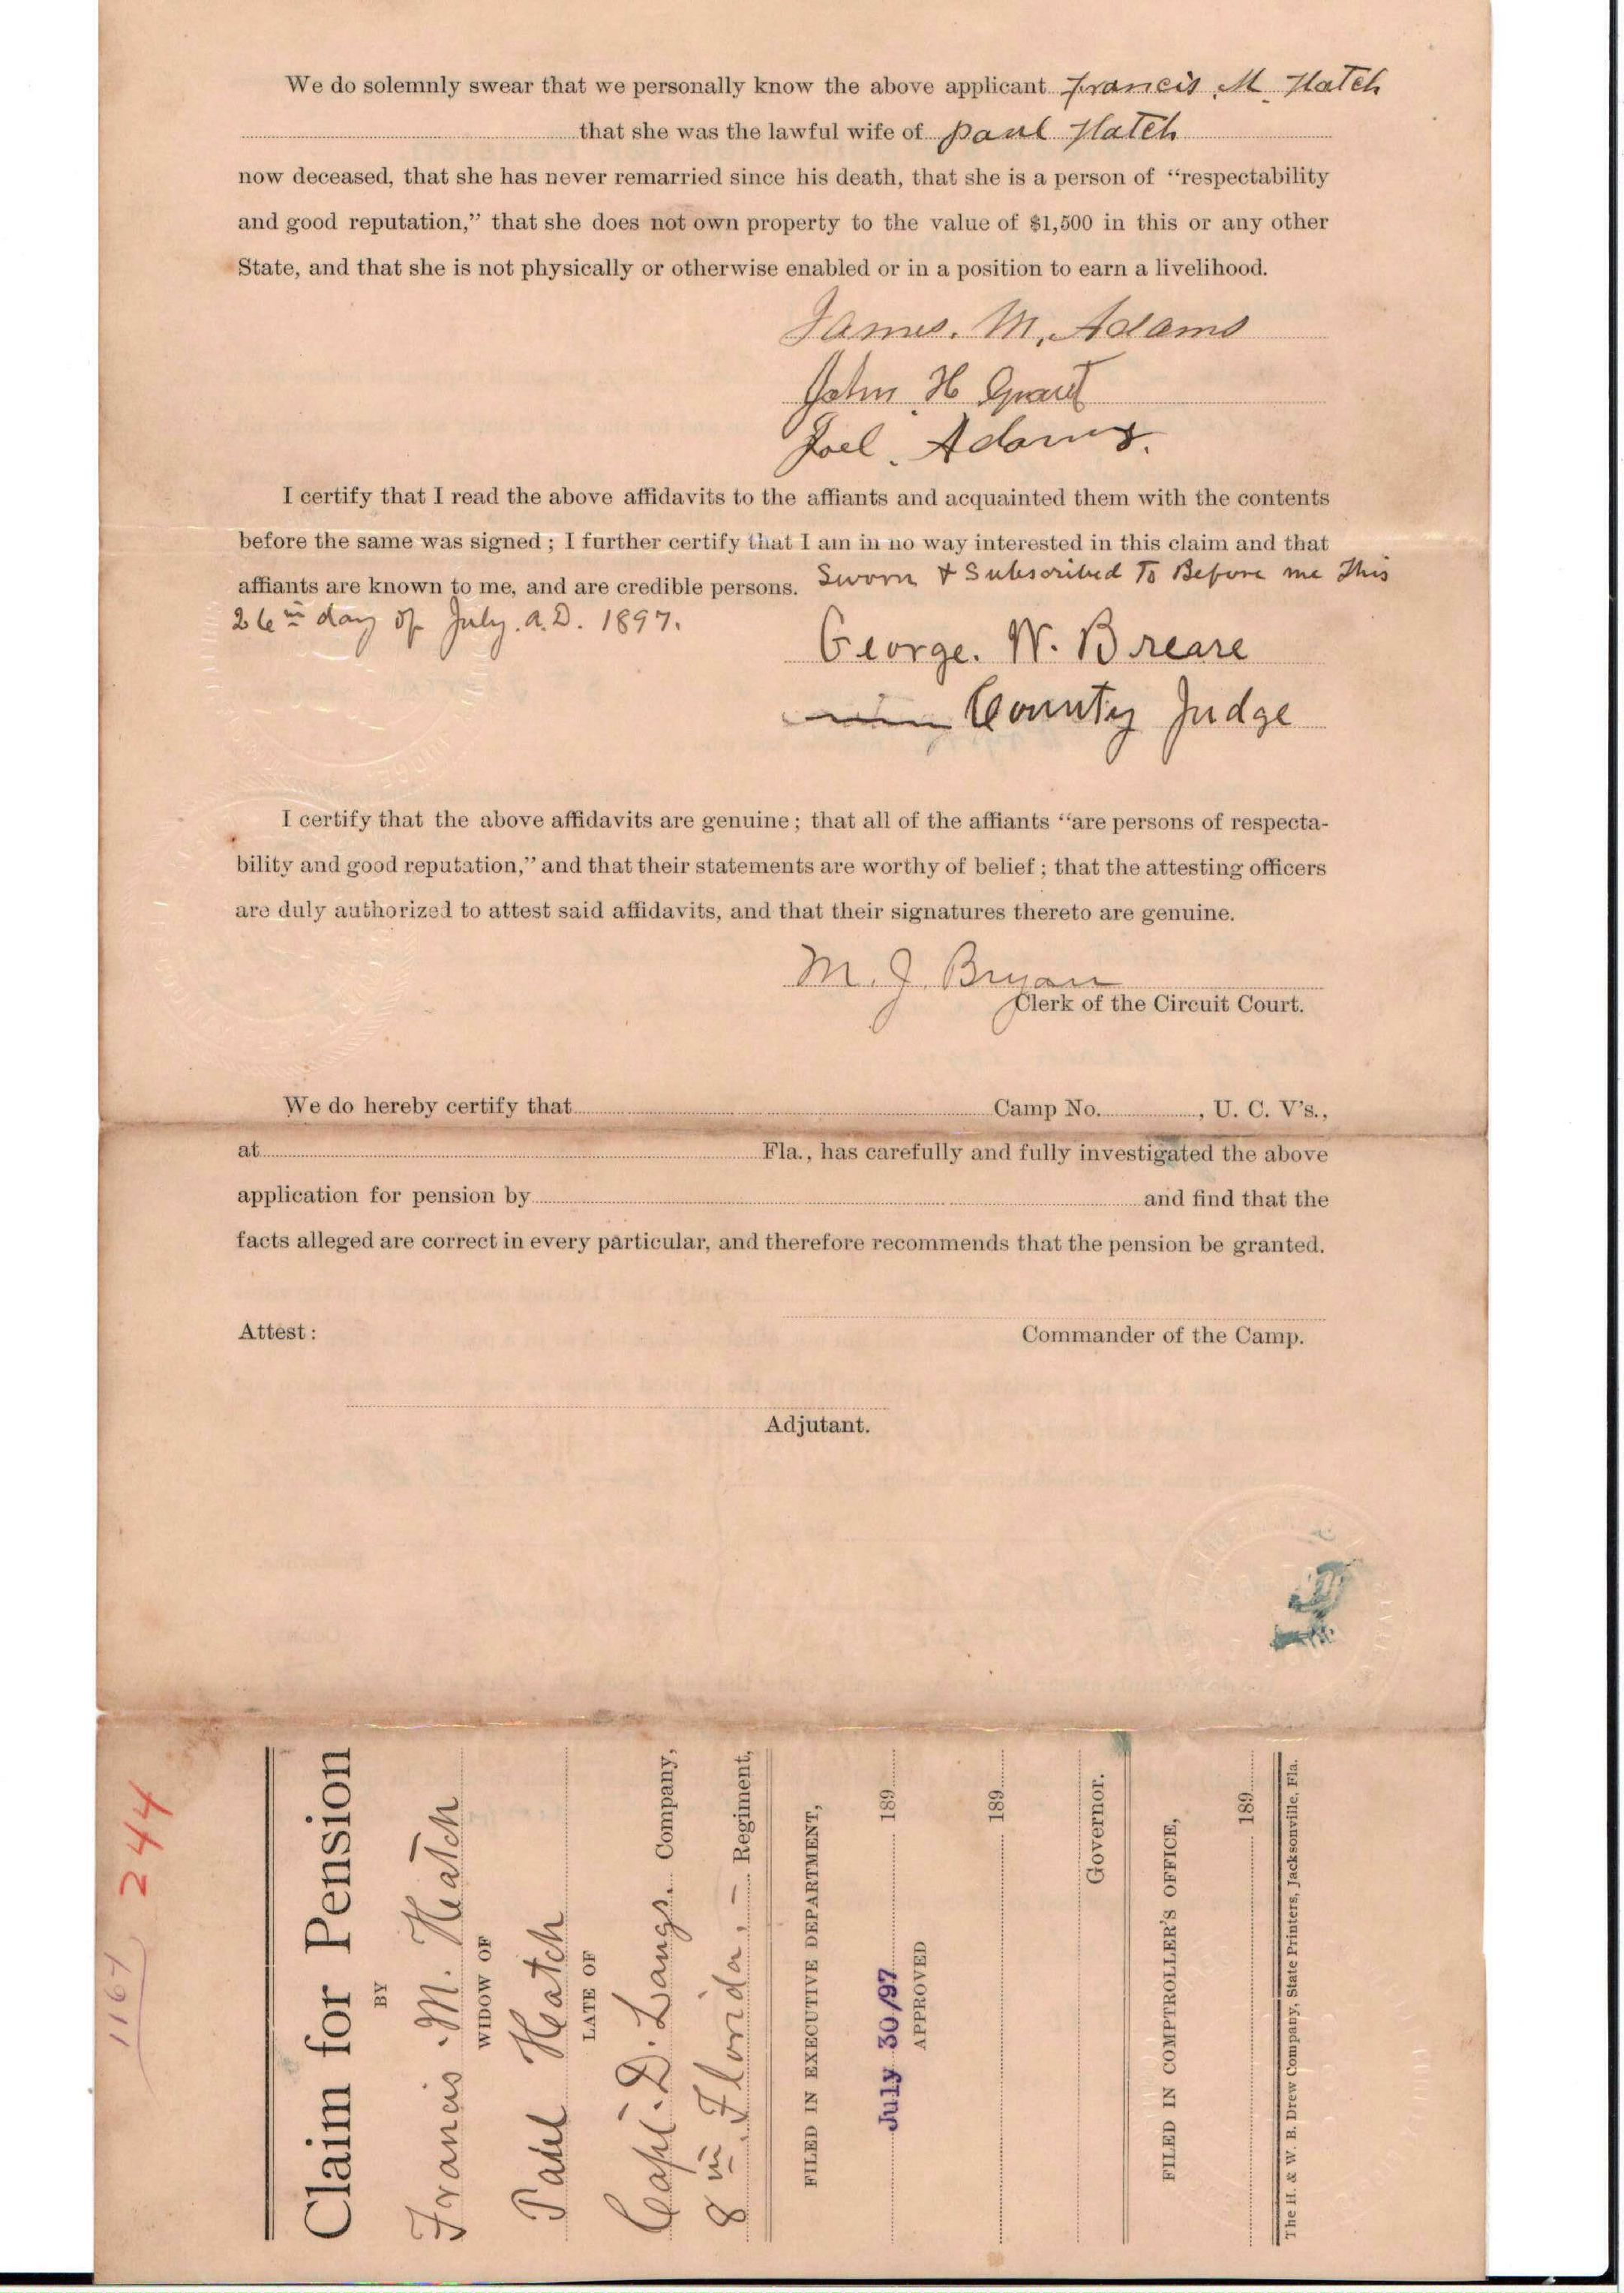 We do solemnly swear that we personally know the above applicant Francis M. Hatch
that she was the lawful wife of Paul Hatch
now deceased, that she has never remarried since his death, that she is a person of “respectability
and good reputation,” that she does not own property to the value of $1,500 in this or any other
State, and that she is not physically or otherwise enabled or in a position to earn a livelihood.
James. M. Adams
John H Grant
Joel. Adams.
I certify that I read the above affidavits to the affiants and acquainted them with the contents
before the same was signed; I further certify that I am in no way interested in this claim and that
affiants are known to me, and are credible persons. Sworn & Subscribed To Before me This
26th day of July. A.D. 1897.
George. W. Breare
County Judge
I certify that the above affidavits are genuine; that all of the affiants “are persons of respecta-
bility and good reputation,” and that their statements are worthy of belief; that the attesting officers
are duly authorized to attest said affidavits, and that their signatures thereto are genuine.
M. J. Bryan
Clerk of the Circuit Court.
We do hereby certify that Camp No. , U. C. V's.,
at Fla., has carefully and fully investigated the above
application for pension by and find that the
facts alleged are correct in every particular, and therefore recommends that the pension be granted.
Attest:
Commander of the Camp.
Adjutant.
1164
244
Claim for Pension
BY
Francis. M. Hatch
WIDOW OF
Paul Hatch
LATE OF
Capt. D. Langs. Company,
8th Florida, Regiment,
FILED IN EXECUTIVE DEPARTMENT,
July 30/97 189
APPROVED
189
Governor.
FILED IN COMPTROLLER'S OFFICE,
189
The H. & W. B. Drew Company, State Printers, Jacksonville, Fla.